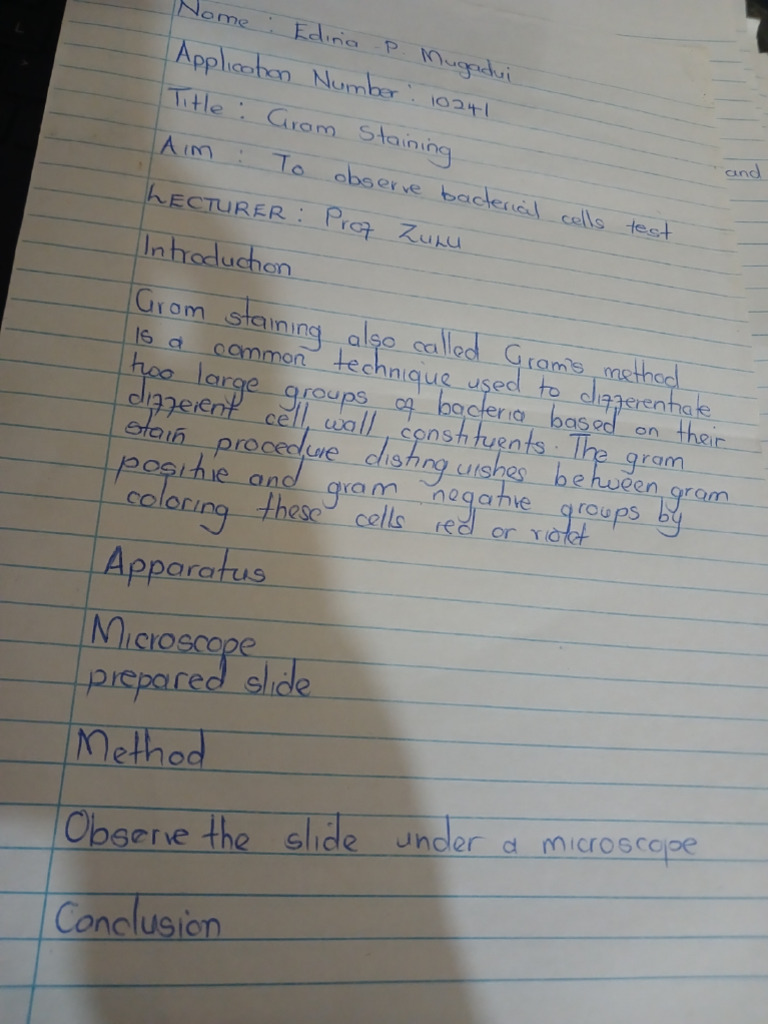 Name : Edina P. Mugadui
Application Number : 10241
Title : Gram Staining
AIM : To observe bacterial cells test
LECTURER : Prof ZULU
Introduction
Gram staining also called Gram's method
is a common technique used to differentiate
two large groups of bacteria based on their
different cell wall constituents. The gram
stain procedure distinguishes between gram
positive and gram negative groups by
coloring these cells red or violet
Apparatus
Microscope
prepared slide
Method
Observe the slide under a microscope
Conclusion
and